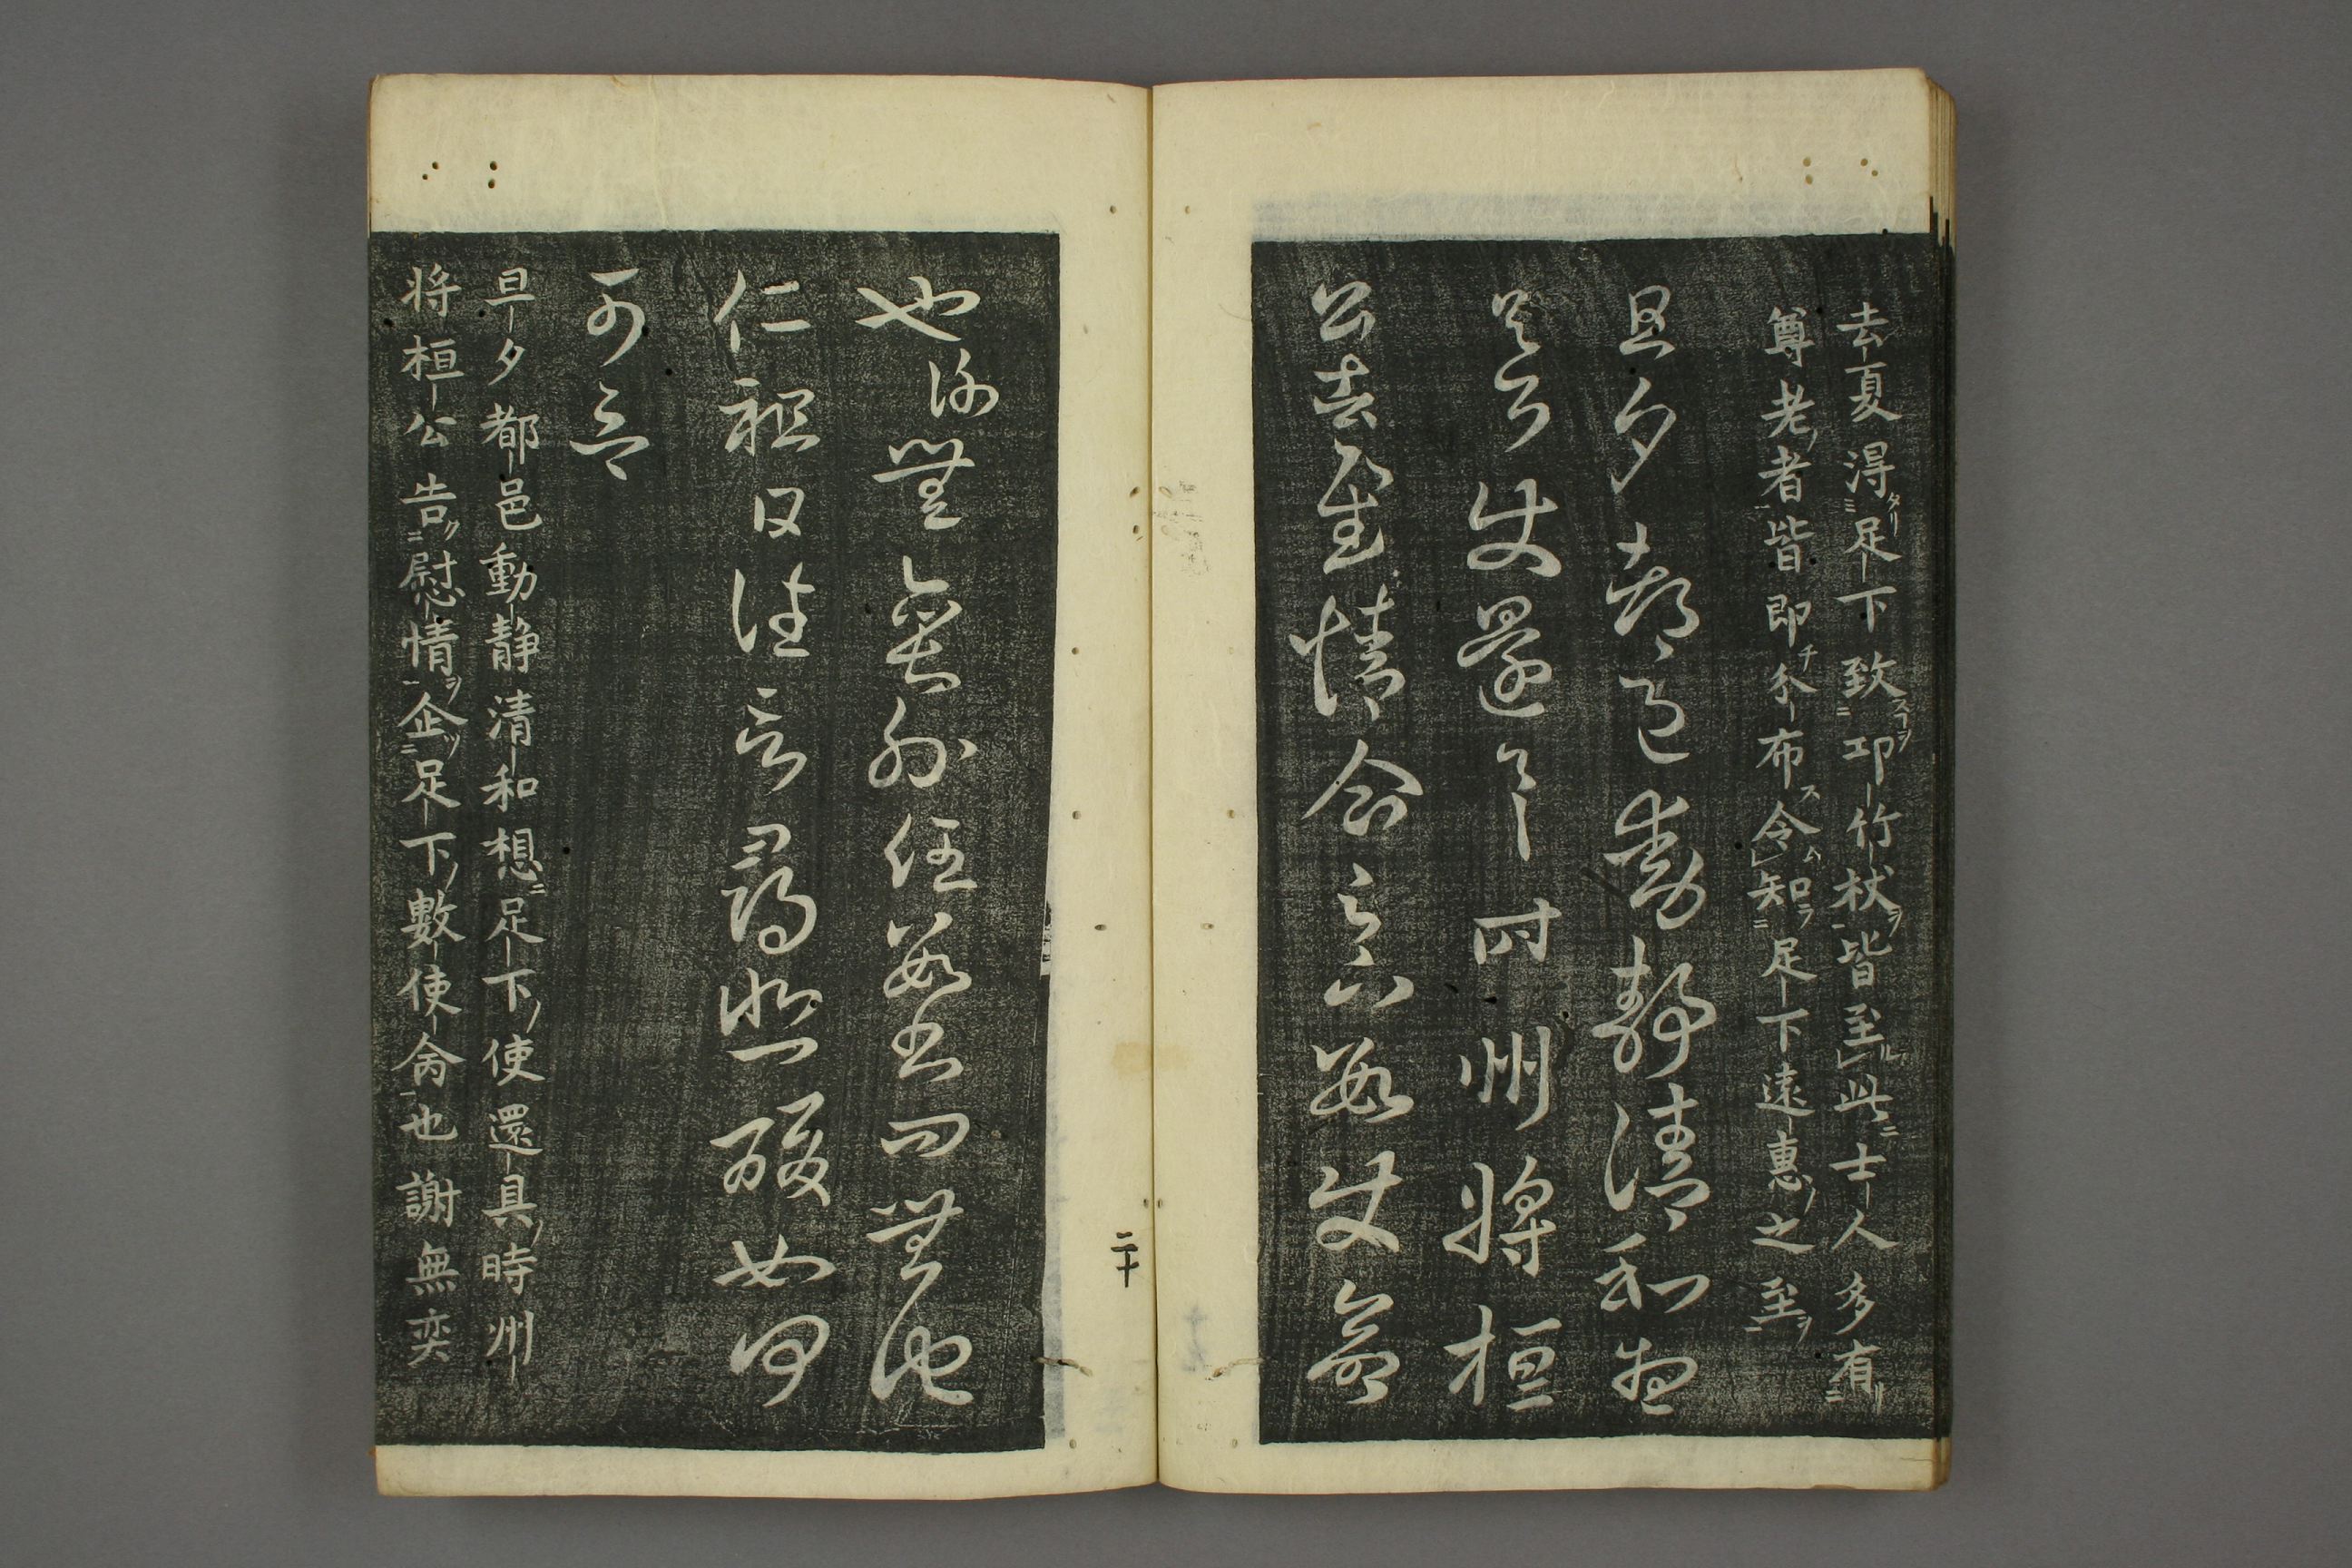 去夏得足下致邛竹杖皆至此士人多有
尊老者皆即分布令知足下遠惠之至
旦夕都邑動靜清和想
足下使還具時州將桓
公告慰情企足下數使命
也謝無奕外任數書問無他
仁祖日往言尋悲酸如何
可言
旦夕都邑動静清和想足下使還具時州
将桓公告慰情企足下數使命也謝無奕
二十